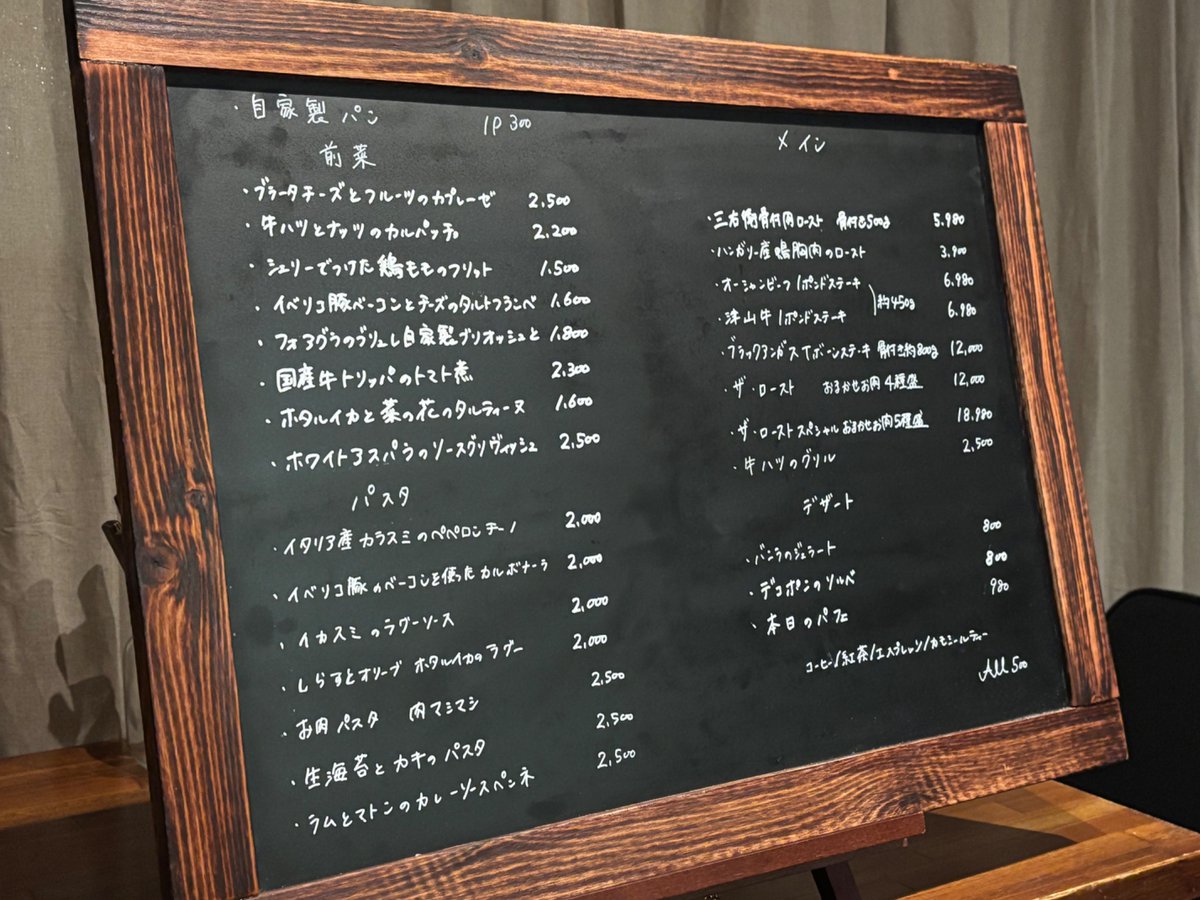 ・自家製パン 1P 300
前菜
・ブラータチーズとフルーツのカプレーゼ 2.500
・牛ハツとナッツのカルパッチョ 2.200
・シェリーでつけた鶏もものフリット 1.500
・イベリコ豚ベーコンとチーズのタルトフランベ 1.600
・フォアグラのブリュレ自家製ブリオッシュと 1.800
・国産牛トリッパのトマト煮 2.300
・ホタルイカと菜の花のタルティーヌ 1.600
・ホワイトアスパラのソースグリヴィッシュ 2.500
パスタ
・イタリア産カラスミのペペロンチーノ 2.000
・イベリコ豚のベーコンを使ったカルボナーラ 2.000
・イカスミのラグーソース 2.000
・しらすとオリーブ ホタルイカのラグー 2.000
・お肉パスタ 肉マシマシ 2.500
・生海苔とカキのパスタ 2.500
・ラムとマトンのカレーソースペンネ 2.500
メイン
・三右衛骨付肉ロースト 骨付き500g 5.980
・ハンガリー産鴨胸肉のロースト 3.900
・オーシャンビーフ1ポンドステーキ 6.980
・津山牛1ポンドステーキ 約450g 6.980
・ブラックアンガスTボーンステーキ 骨付き約800g 12,000
・ザ・ロースト おまかせお肉4種盛 12,000
・ザ・ローストスペシャルおまかせお肉5種盛 18.980
・牛ハツのグリル 2,500
デザート
・バニラのジェラート 800
・デコポンのソルベ 800
・本日のパフェ 980
コーヒー/紅茶/エスプレッソ/カモミールティー
All 500